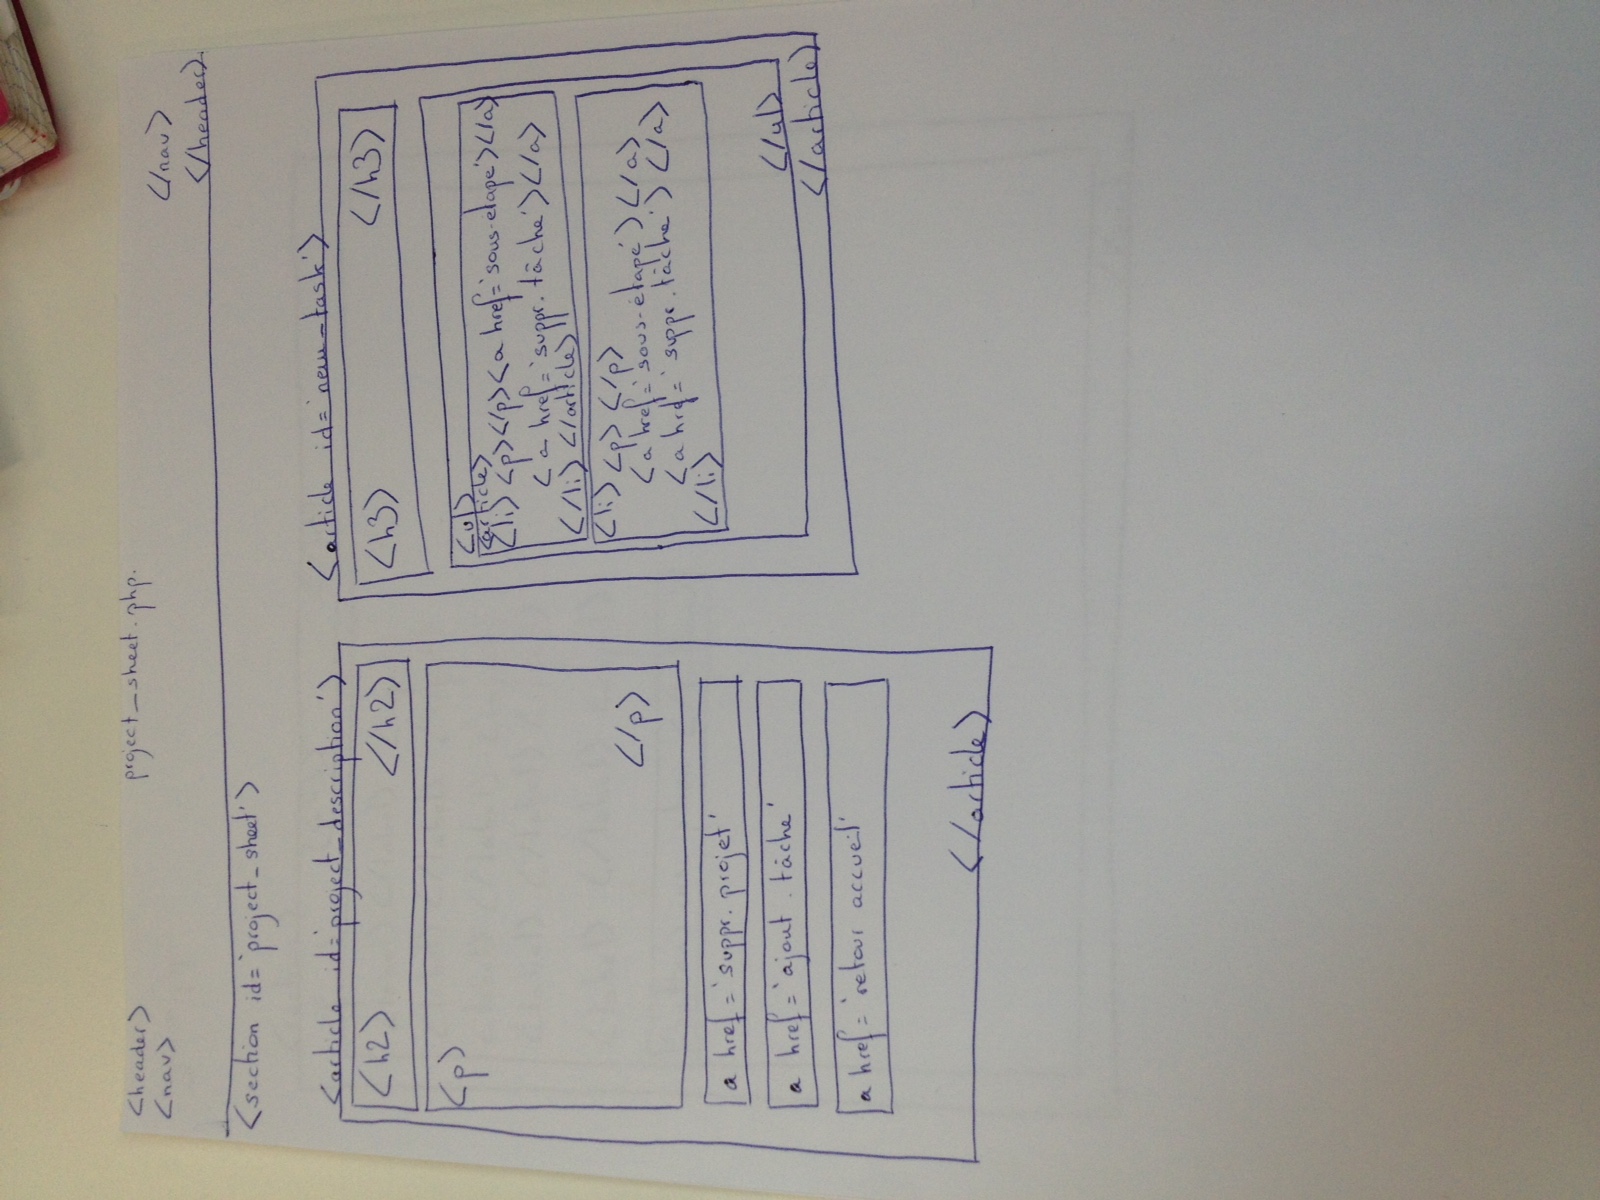 <header>
project_sheet.php.
<nav>
</nav>
</header>.
<section id='project_sheet'>
<article id='project_description'>
<h2> </h2>
<p>
</p>
a href='suppr. projet'
a href='ajout . tâche'
a href='retour accueil'
</article>
<article id='new_task'>
<h3> </h3>
<ul>
<article>
<li> <p></p><a href='sous-étape'></a>
<a href='suppr. tâche'></a>
</li> </article>
<li> <p> </p>
<a href='sous-étape'></a>
<a href='suppr. tâche'> </a>
</li>
</ul>
</article>